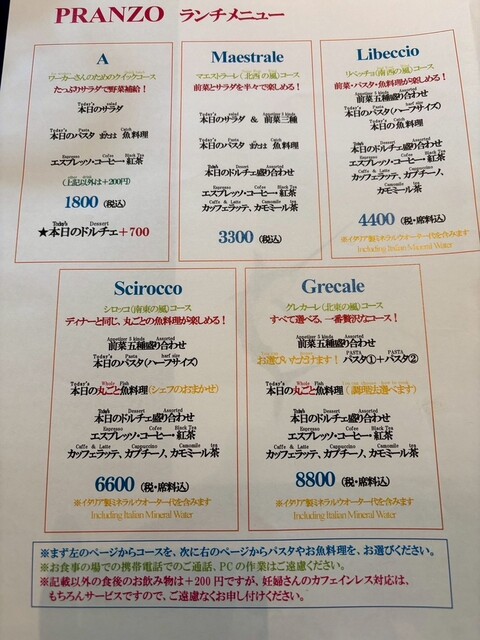 PRANZO ランチメニュー
A
ワーカーさんのためのクイックコース
たっぷりサラダで野菜補給！
Today's salad
本日のサラダ
Today's Pasta Catch
本日のパスタ または 魚料理
Espresso Cofee Black Tea
エスプレッソ・コーヒー・紅茶
(上記以外は＋200円)
1800 (税込)
Today's Dessert
★本日のドルチェ＋700
Maestrale
マエストラーレ（北西の風）コース
前菜とサラダを半々で楽しめる！
Today's salad Appetizer 3 kinds
本日のサラダ ＆ 前菜三種
Today's Pasta Catch
本日のパスタ または 魚料理
Today's Dessert Assorted
本日のドルチェ盛り合わせ
Espresso Cofee Black Tea
エスプレッソ・コーヒー・紅茶
Caffe & Latte Cappuccino Camomile tea
カッフェラッテ、カプチーノ、カモミール茶
3300 (税込)
Libeccio
リベッチョ（南西の風）コース
前菜・パスタ・魚料理が楽しめる！
Appetizer 5 kinds Assorted
前菜五種盛り合わせ
Today's Pasta harf size
本日のパスタ(ハーフサイズ)
Today's Catch
本日の魚料理
Today's Dessert Assorted
本日のドルチェ盛り合わせ
Espresso Cofee Black Tea
エスプレッソ・コーヒー・紅茶
Caffe & Latte Cappuccino
カッフェラッテ、カプチーノ、
Camomile tea
カモミール茶
4400 (税・席料込)
※イタリア製ミネラルウオーター代を含みます
Including Italian Mineral Water
Scirocco
シロッコ（南東の風）コース
ディナーと同じ、丸ごとの魚料理が楽しめる！
Appetizer 5 kinds Assorted
前菜五種盛り合わせ
Today's Pasta harf size
本日のパスタ（ハーフサイズ）
Today's Whole Fish
本日の丸ごと魚料理（シェフのおまかせ）
Today's Dessert Assorted
本日のドルチェ盛り合わせ
Espresso Cofee Black Tea
エスプレッソ・コーヒー・紅茶
Caffe & Latte Cappuccino Camomile tea
カッフェラッテ、カプチーノ、カモミール茶
6600 (税・席料込)
※イタリア製ミネラルウオーター代を含みます
Including Italian Mineral Water
Grecale
グレカーレ（北東の風）コース
すべて選べる、一番贅沢なコース！
Appetizer 5 kinds Assorted
前菜五種盛り合わせ
PASTA PASTA
お選びいただけます！ パスタ①＋パスタ②
Today's Whole Fish
本日の丸ごと魚料理（調理法選べます）
Today's Dessert Assorted
本日のドルチェ盛り合わせ
Espresso Cofee Black Tea
エスプレッソ・コーヒー・紅茶
Caffe & Latte Cappuccino Camomile tea
カッフェラッテ、カプチーノ、カモミール茶
8800 (税・席料込)
※イタリア製ミネラルウオーター代を含みます
Including Italian Mineral Water
※まず左のページからコースを、次に右のページからパスタやお魚料理を、お選びください。
※お食事の場での携帯電話でのご通話、PCの作業はご遠慮ください。
※記載以外の食後のお飲み物は＋200円ですが、妊婦さんのカフェインレス対応は、
もちろんサービスですので、ご遠慮なくお申し付けください。